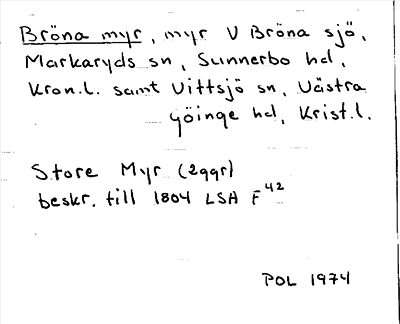 Bröna myr, myr V Bröna sjö,
Markaryds sn, Sunnerbo hd,
Kron.l. samt Vittsjö sn, Västra
göinge hd, Krist.l.
Store Myr (2ggr)
beskr. till 1804 LSA F42
POL 1974